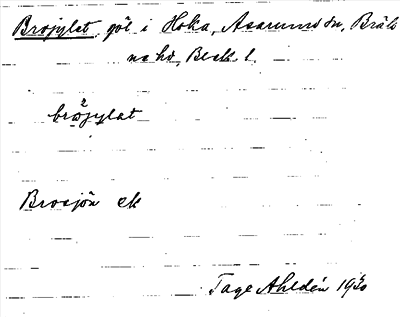 Brojylet, göl i Hoka, Asarums sn, Bräk
ne hd, Blek. l.
bròjylat
Brosjön ek
Tage Ahldén 1930